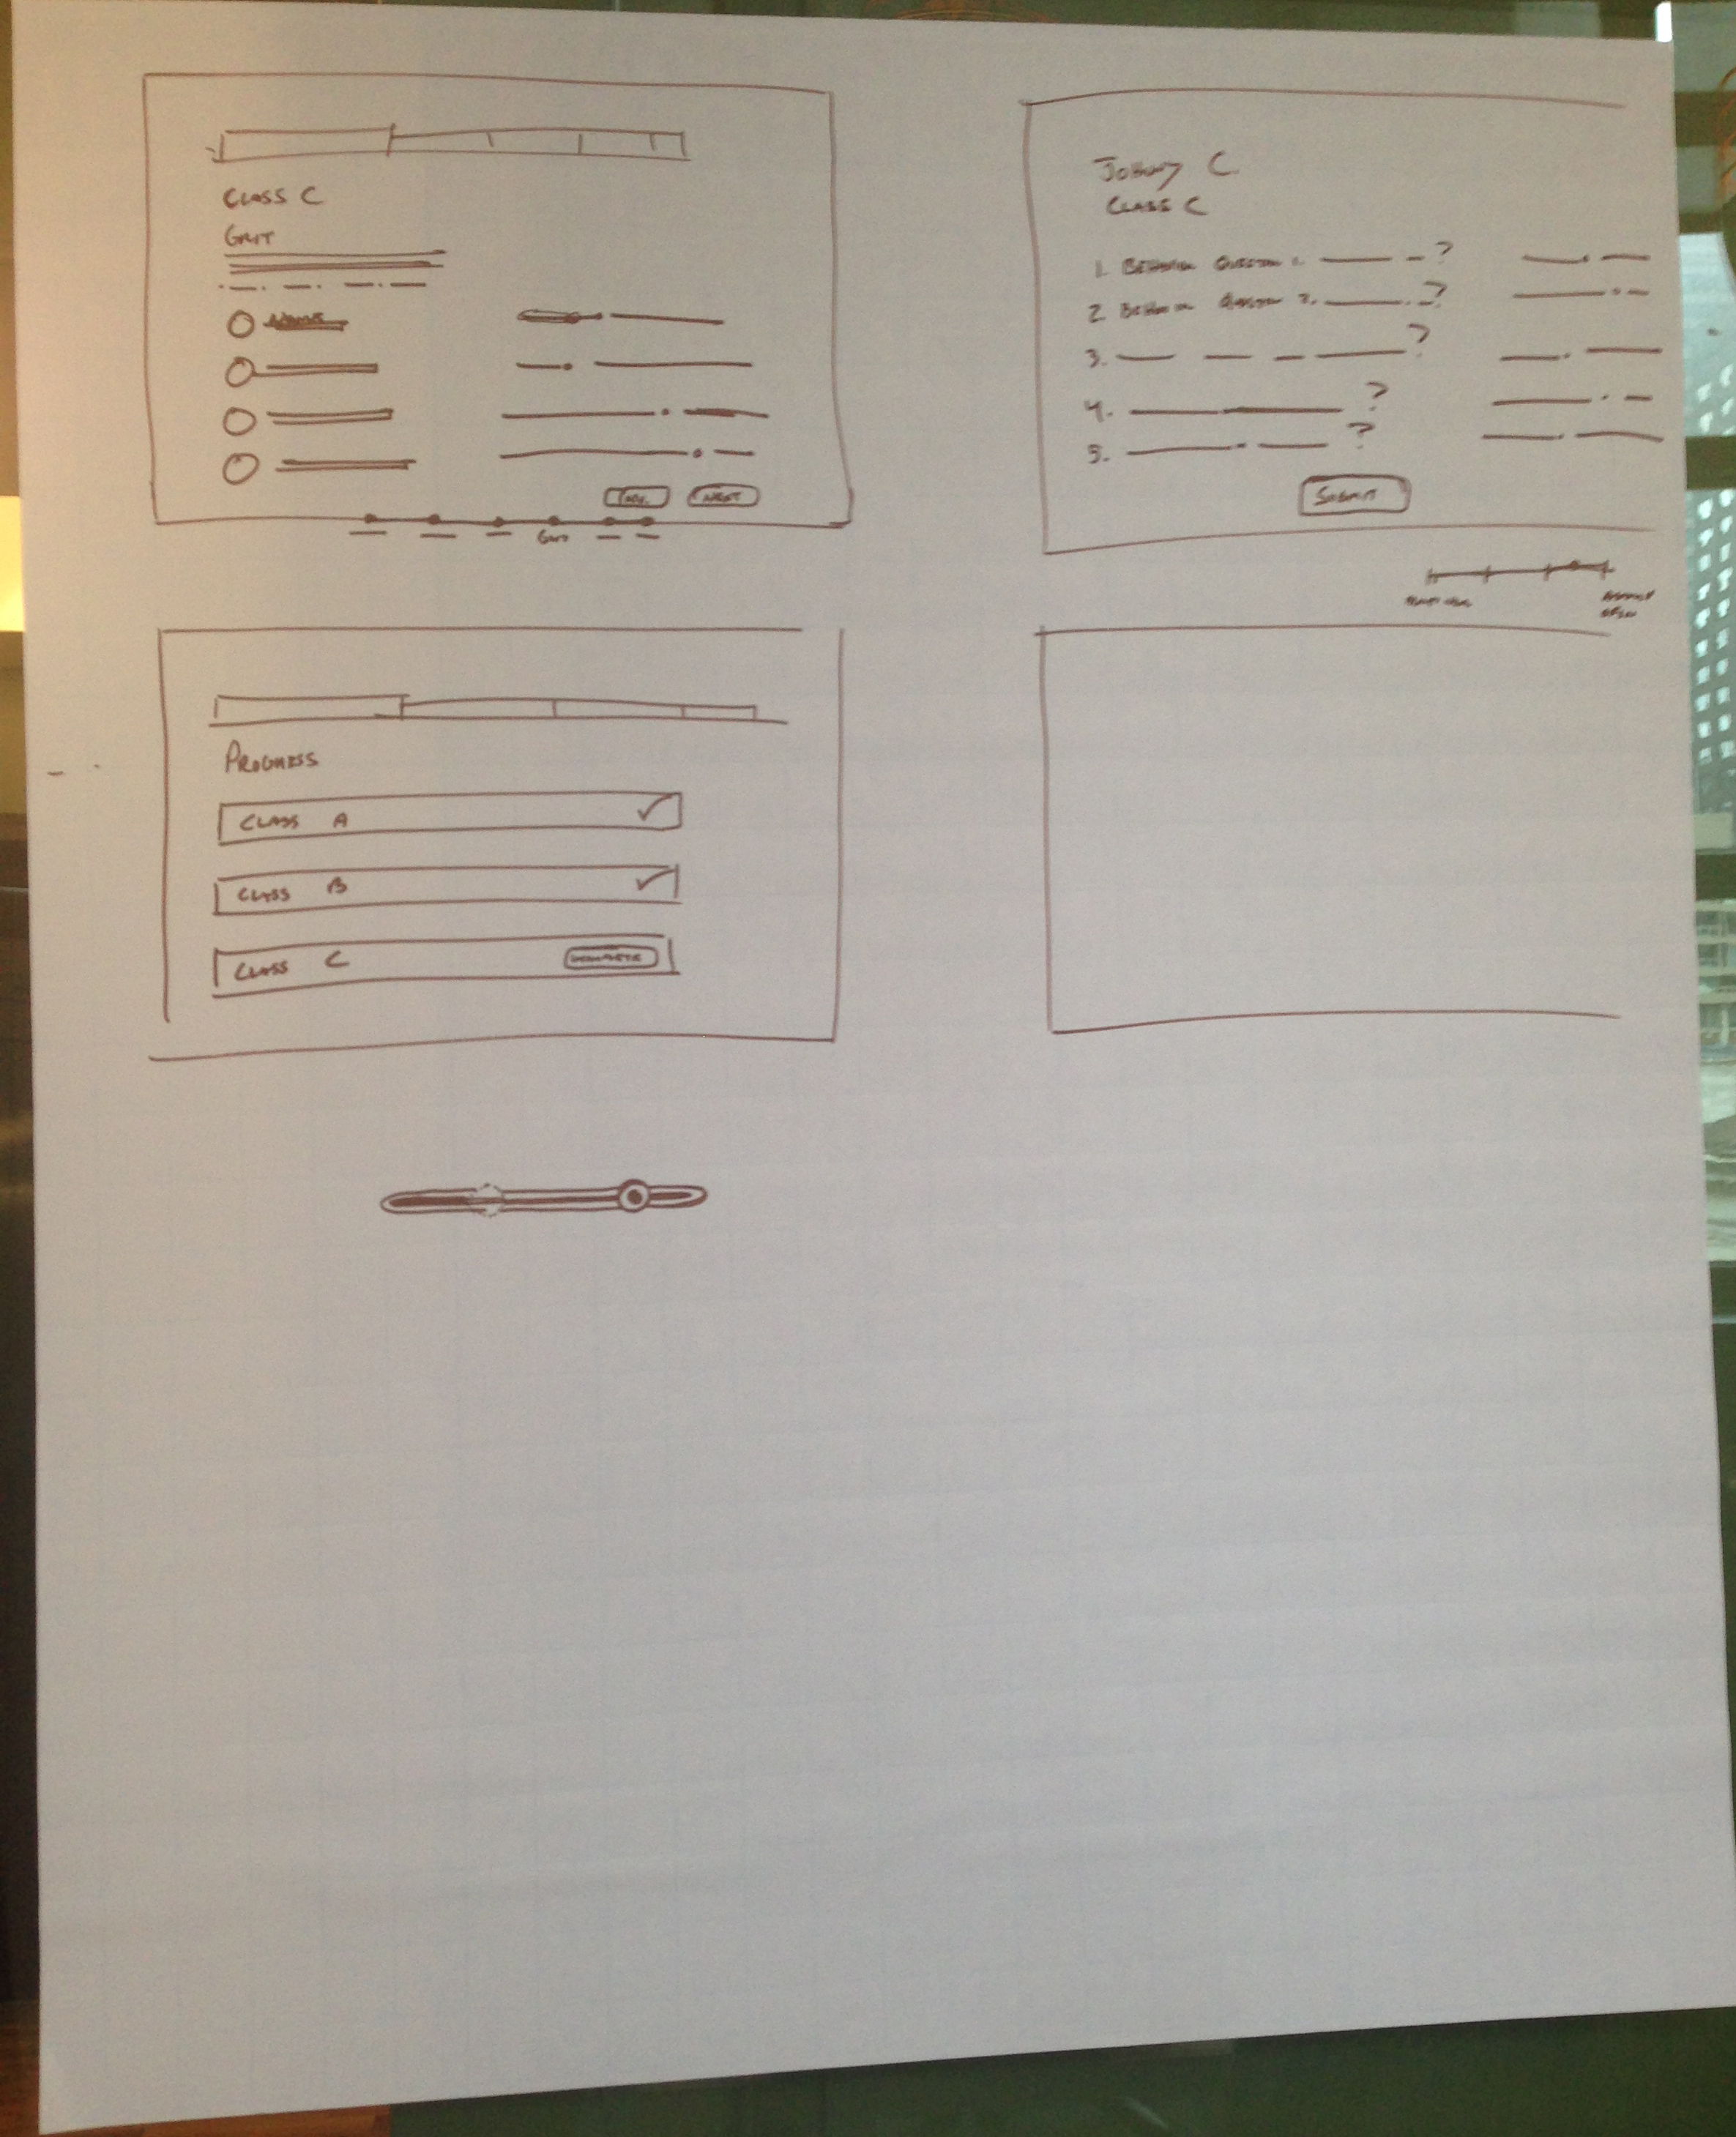 CLASS C
GRIT
NAME
NEXT
GRIT
JOHNNY C
CLASS C
1. BEHAVIOR QUESTION 1. ?
2 BEHAVIOR QUESTION 2. ?
3. ?
4. ?
5. ?
SUBMIT
PROGRESS
CLASS A
CLASS B
CLASS C INCOMPLETE